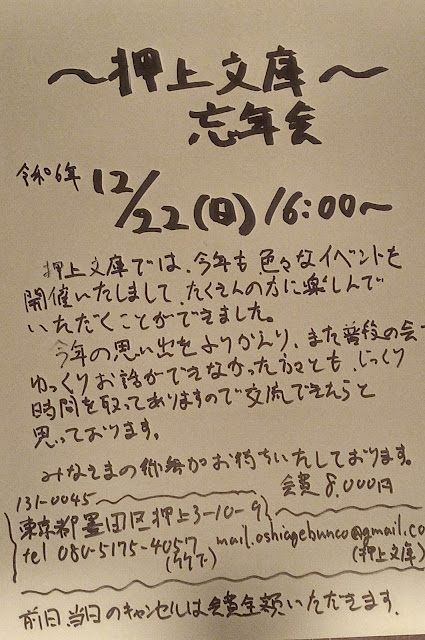 ～押上文庫～
忘年会
令和6年
12/22(日)16:00～
押上文庫では、今年も色々なイベントを
開催いたしまして、たくさんの方に楽しんで
いただくことができました。
今年の思い出をふりかえり、また普段の会で
ゆっくりお話ができなかった方々とも、じっくり
時間を取ってありますので交流できたらと
思っております。
みなさまの御参加お待ちいたしております。
会費 8,000円
131-0045
東京都墨田区押上3-10-9
tel 080-5175-4057 mail.oshiagebunco@gmail.co
(押上文庫)
前日、当日のキャンセルは会費全額いただきます。